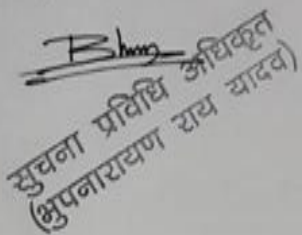 सुचना प्रविधि अधिकृत
(भुपनारायण राय यादव)